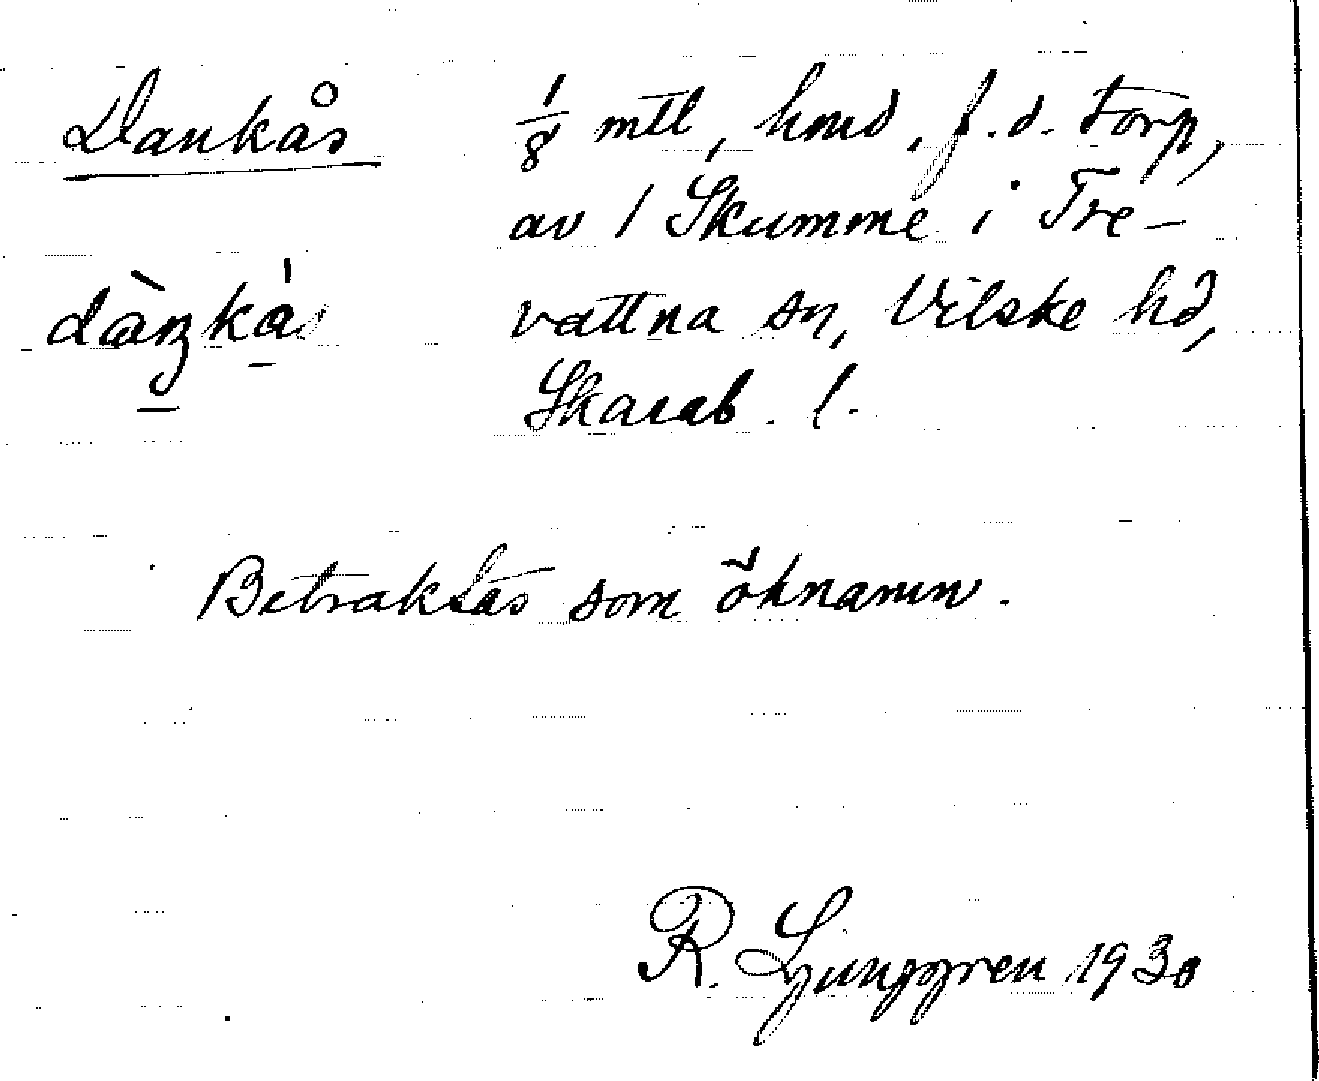 Dankås
1/8 mtl, hmd, f.d. torp,
av 1 Skumme i Tre-
vattna sn, Vilske hd,
Skarab. l.
Betraktas som öknamn.
R. Ljunggren 1930